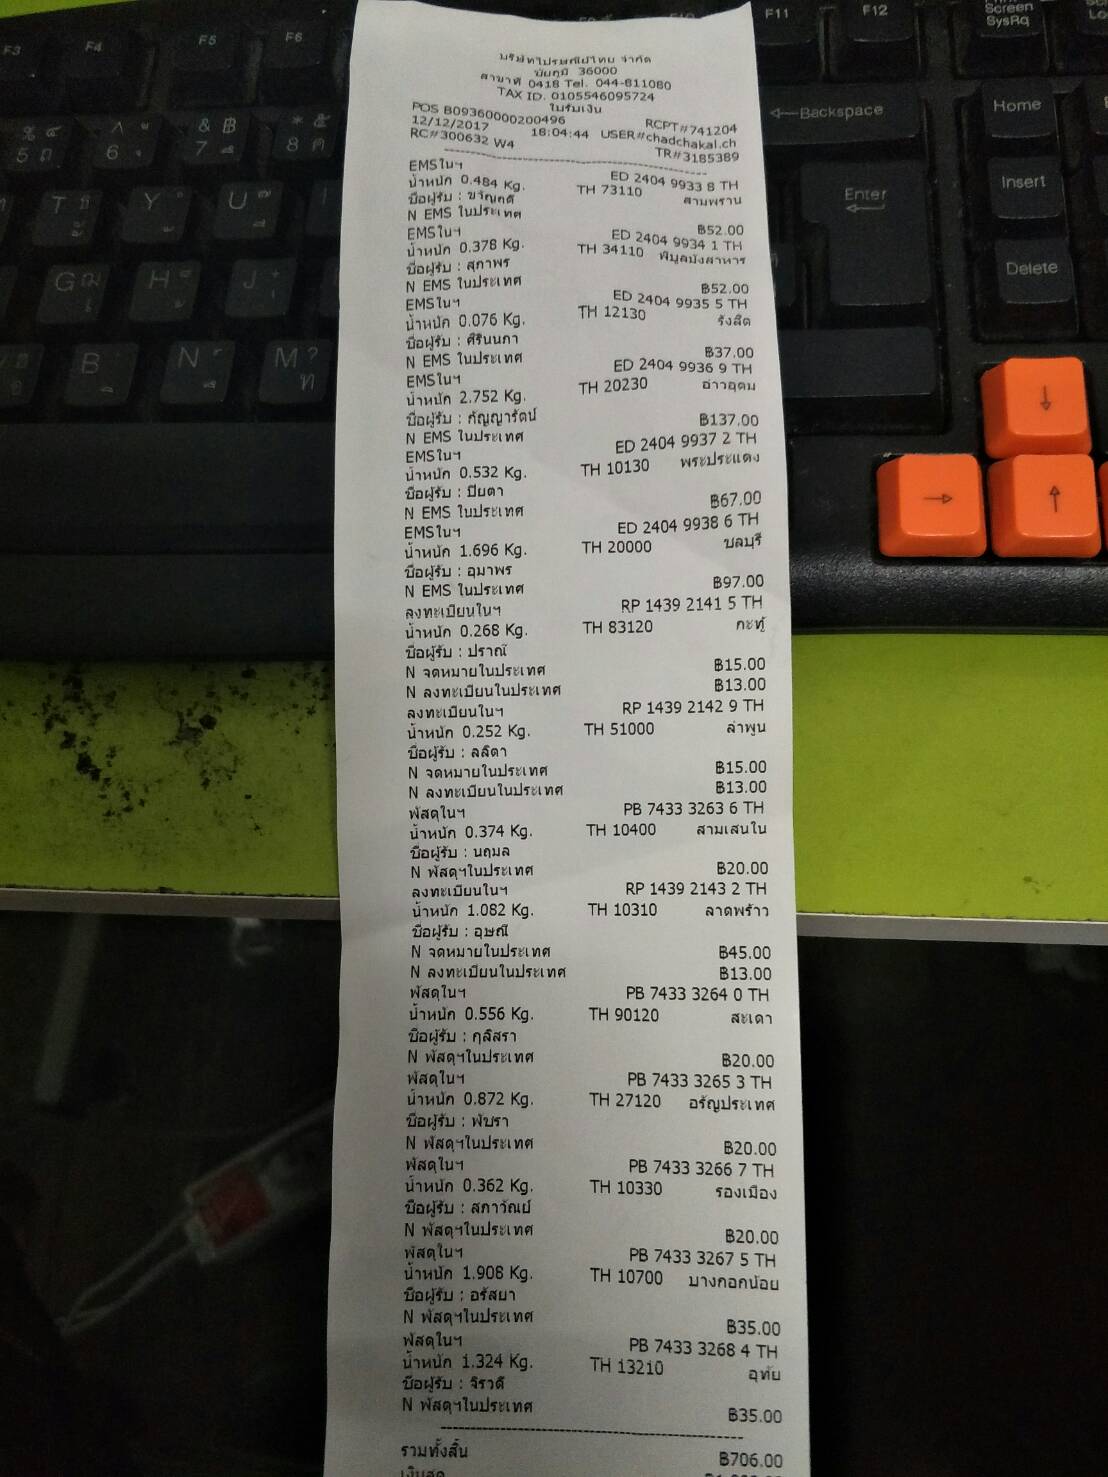 บริษัทไปรษณีย์ไทย จำกัด
ชัยภูมิ 36000
สาขาที่ 0418 Tel. 044-811080
TAX ID. 0105546095724
ใบรับเงิน
POS B09360000200496 RCPT#741204
12/12/2017 18:04:44 USER#chadchakal.ch
RC#300632 W4 TR#3185389
EMSในฯ ED 2404 9933 8 TH
น้ำหนัก 0.484 Kg. TH 73110 สามพราน
ชื่อผู้รับ : ขวัญฤดี
N EMS ในประเทศ ฿52.00
EMSในฯ ED 2404 9934 1 TH
น้ำหนัก 0.378 Kg. TH 34110 พิบูลมังสาหาร
ชื่อผู้รับ : สุภาพร
N EMS ในประเทศ ฿52.00
EMSในฯ ED 2404 9935 5 TH
น้ำหนัก 0.076 Kg. TH 12130 รังสิต
ชื่อผู้รับ : ศิรินนภา
N EMS ในประเทศ ฿37.00
EMSในฯ ED 2404 9936 9 TH
น้ำหนัก 2.752 Kg. TH 20230 อ่าวอุดม
ชื่อผู้รับ : กัญญารัตน์
N EMS ในประเทศ ฿137.00
EMSในฯ ED 2404 9937 2 TH
น้ำหนัก 0.532 Kg. TH 10130 พระประแดง
ชื่อผู้รับ : ปิยตา
N EMS ในประเทศ ฿67.00
EMSในฯ ED 2404 9938 6 TH
น้ำหนัก 1.696 Kg. TH 20000 ชลบุรี
ชื่อผู้รับ : อุมาพร
N EMS ในประเทศ ฿97.00
ลงทะเบียนในฯ RP 1439 2141 5 TH
น้ำหนัก 0.268 Kg. TH 83120 กะทู้
ชื่อผู้รับ : ปราณี
N จดหมายในประเทศ ฿15.00
N ลงทะเบียนในประเทศ ฿13.00
ลงทะเบียนในฯ RP 1439 2142 9 TH
น้ำหนัก 0.252 Kg. TH 51000 ลำพูน
ชื่อผู้รับ : ลลิตา
N จดหมายในประเทศ ฿15.00
N ลงทะเบียนในประเทศ ฿13.00
พัสดุในฯ PB 7433 3263 6 TH
น้ำหนัก 0.374 Kg. TH 10400 สามเสนใน
ชื่อผู้รับ : นฤมล
N พัสดุฯในประเทศ ฿20.00
ลงทะเบียนในฯ RP 1439 2143 2 TH
น้ำหนัก 1.082 Kg. TH 10310 ลาดพร้าว
ชื่อผู้รับ : อุษณี
N จดหมายในประเทศ ฿45.00
N ลงทะเบียนในประเทศ ฿13.00
พัสดุในฯ PB 7433 3264 0 TH
น้ำหนัก 0.556 Kg. TH 90120 สะเดา
ชื่อผู้รับ : กุลิสรา
N พัสดุฯในประเทศ ฿20.00
พัสดุในฯ PB 7433 3265 3 TH
น้ำหนัก 0.872 Kg. TH 27120 อรัญประเทศ
ชื่อผู้รับ : พัชรา
N พัสดุฯในประเทศ ฿20.00
พัสดุในฯ PB 7433 3266 7 TH
น้ำหนัก 0.362 Kg. TH 10330 รองเมือง
ชื่อผู้รับ : สภาวัณย์
N พัสดุฯในประเทศ ฿20.00
พัสดุในฯ PB 7433 3267 5 TH
น้ำหนัก 1.908 Kg. TH 10700 บางกอกน้อย
ชื่อผู้รับ : อรัสยา
N พัสดุฯในประเทศ ฿35.00
พัสดุในฯ PB 7433 3268 4 TH
น้ำหนัก 1.324 Kg. TH 13210 อุทัย
ชื่อผู้รับ : จิรวดี
N พัสดุฯในประเทศ ฿35.00
รวมทั้งสิ้น ฿706.00
เงินสด
F3 F4 F5 F6 F11 F12
Screen
SysRq
Backspace Home
5 6 & 7 ฿ * 8
T Y U Enter Insert
G H J Delete
B N M